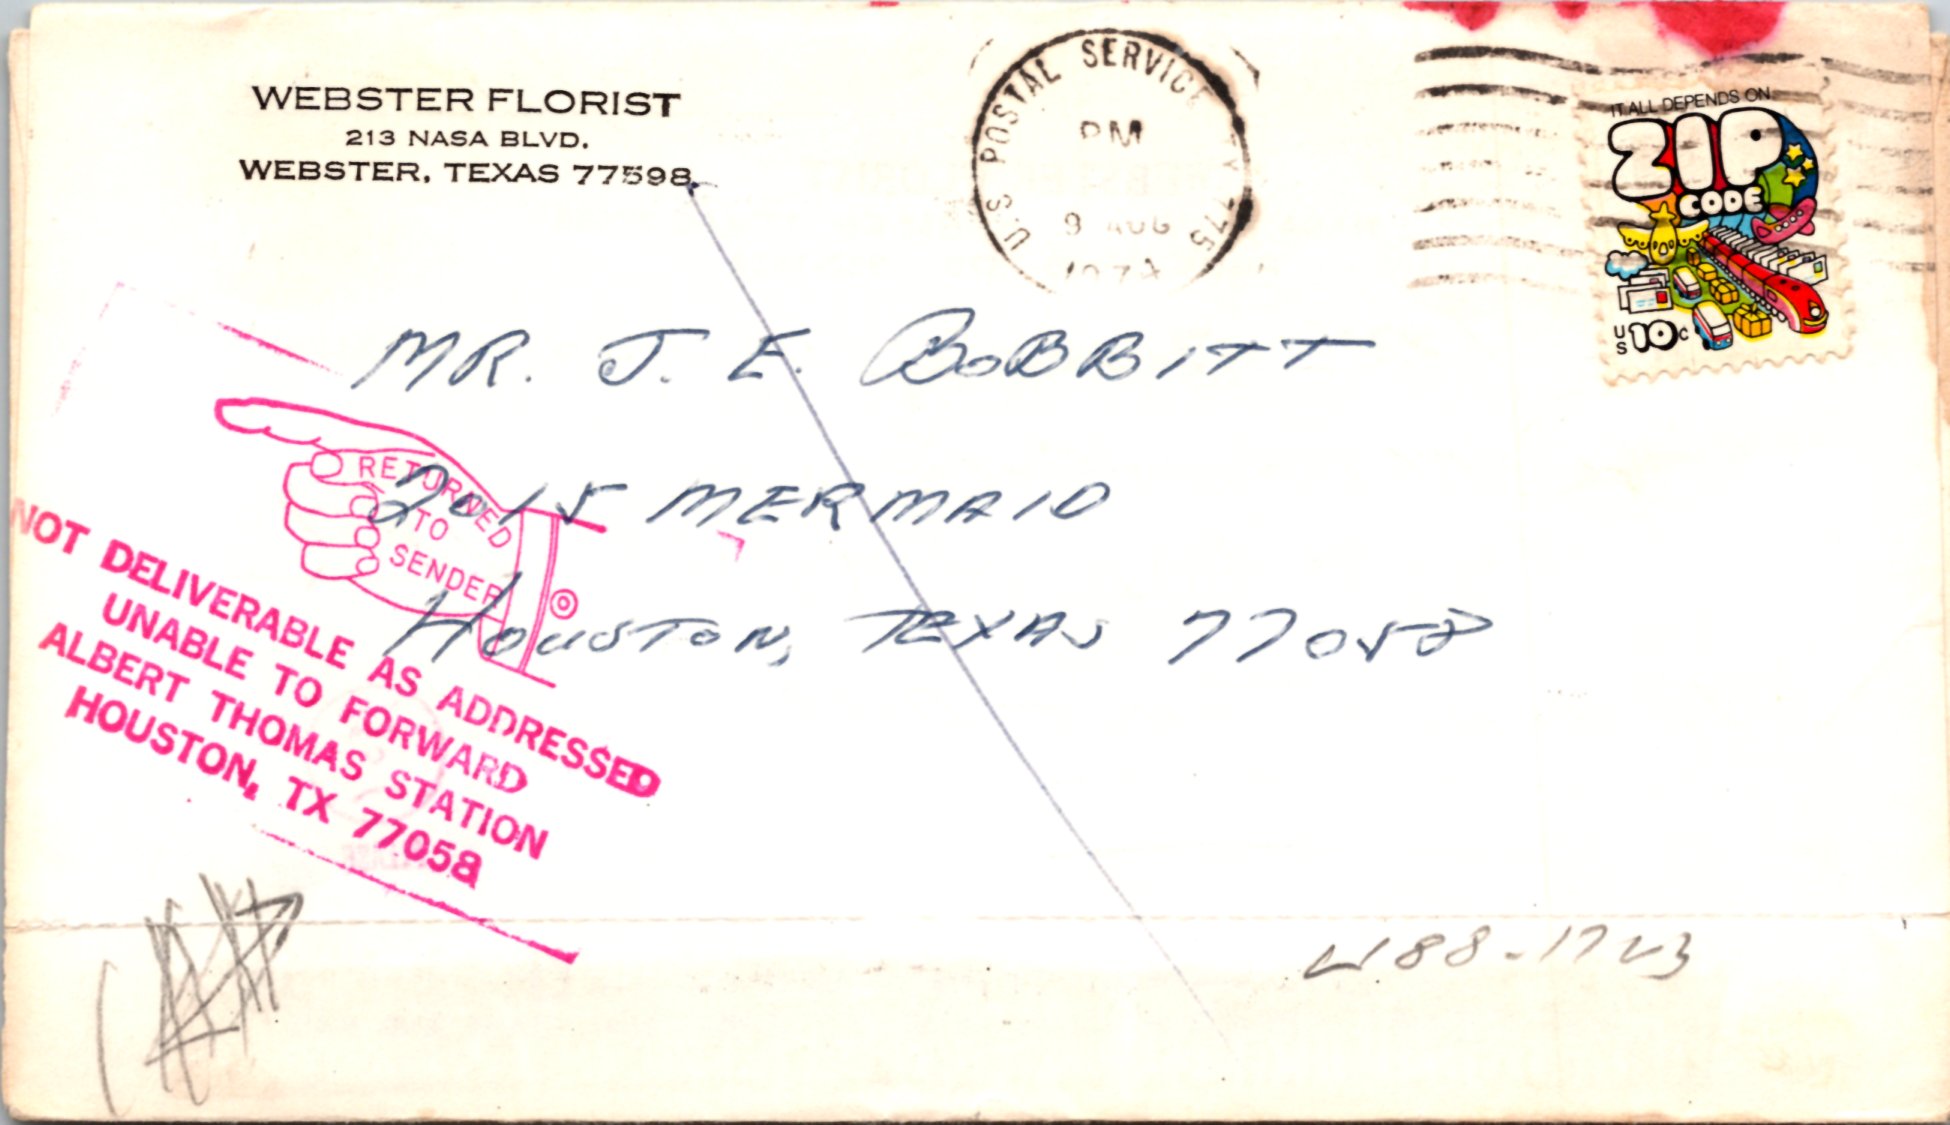 WEBSTER FLORIST
213 NASA BLVD.
WEBSTER, TEXAS 77598
U.S POSTAL SERVICE 775
PM
9 AUG
IT ALL DEPENDS ON
ZIP
CODE
US 10c
MR. J. E. BOBBITT
2015 MERMAID
HOUSTON, TEXAS 77058
RETURNED
TO
SENDER
NOT DELIVERABLE AS ADDRESSED
UNABLE TO FORWARD
ALBERT THOMAS STATION
HOUSTON, TX 77058
488-1723